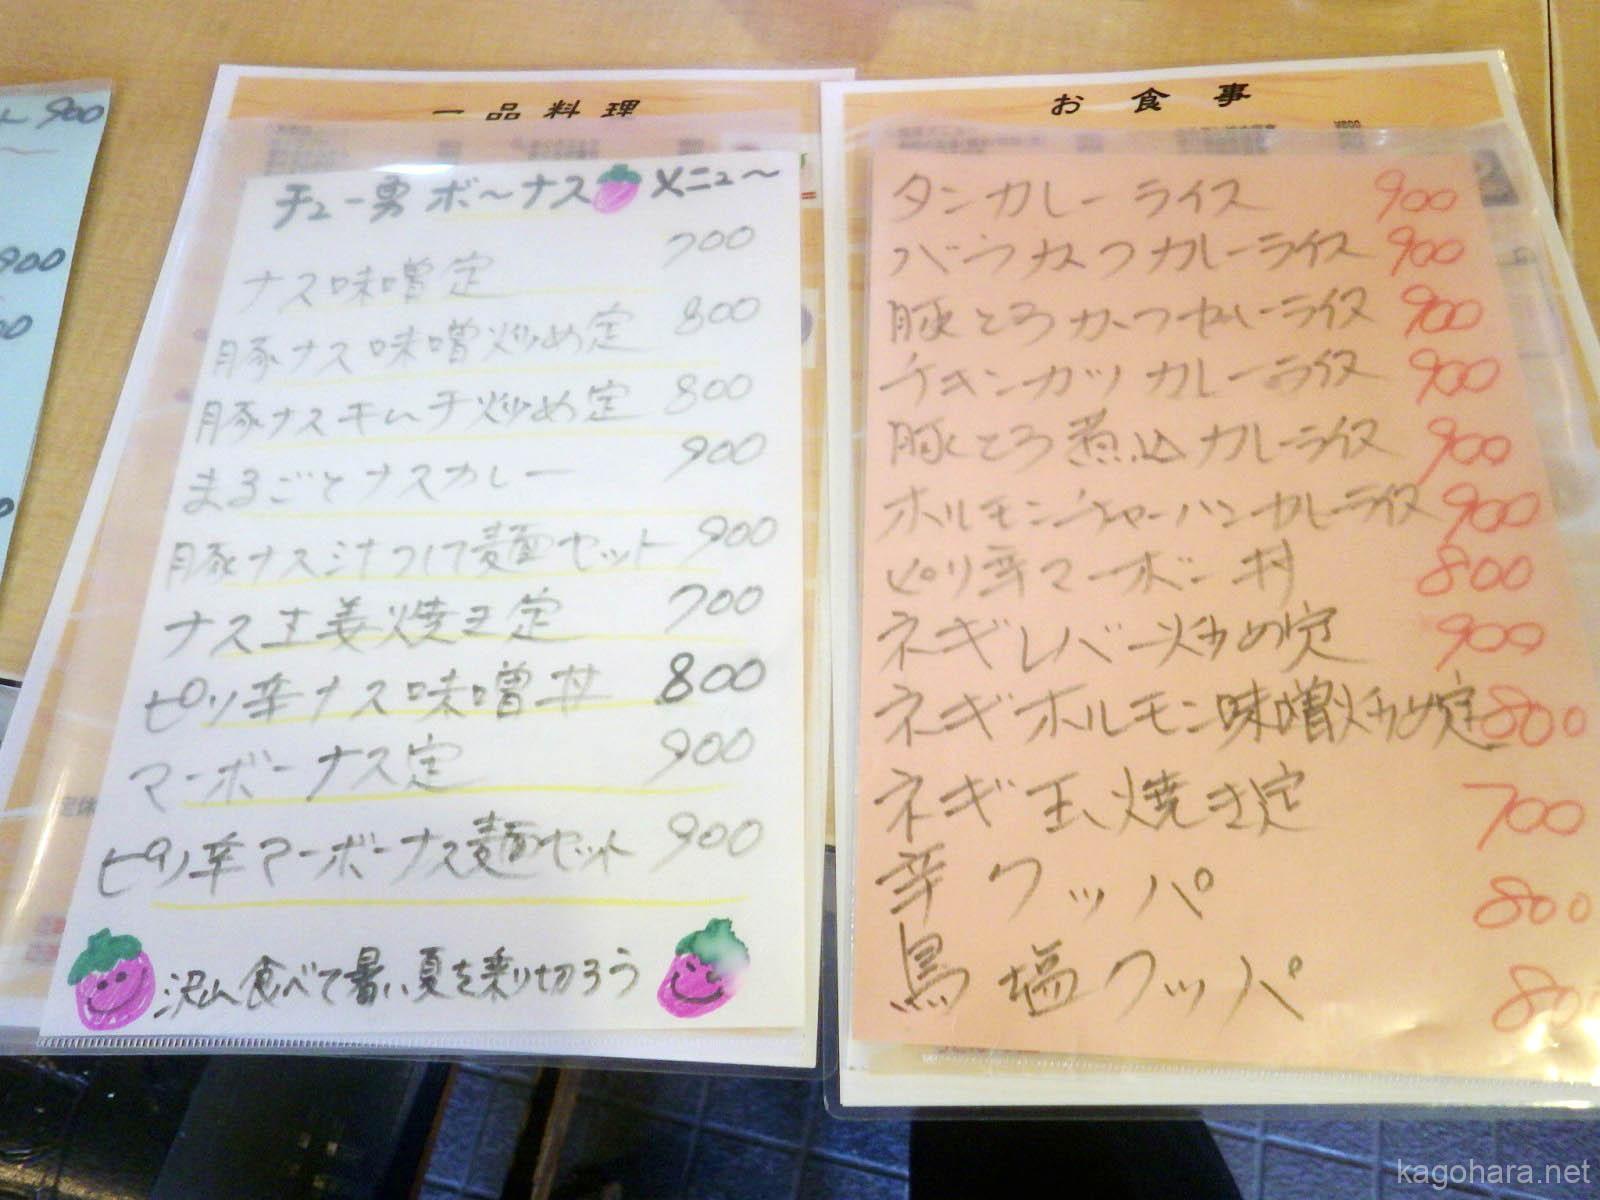 一品料理
チュー勇ボ〜ナスメニュ〜
ナス味噌定 700
豚ナス味噌炒め定 800
豚ナスキムチ炒め定 800
まるごとナスカレー 900
豚ナス汁つけ麺セット 900
ナス生姜焼き定 700
ピリ辛ナス味噌丼 800
マーボーナス定 900
ピリ辛マーボーナス麺セット 900
沢山食べて暑い夏を乗り切ろう
お食事
タンカレーライス 900
バラカツカレーライス 900
豚とろカツカレーライス 900
チキンカツカレーライス 900
豚とろ煮込カレーライス 900
ホルモンチャーハンカレーライス 900
ピリ辛マーボー丼 800
ネギレバー炒め定 900
ネギホルモン味噌炒め定 800
ネギ玉焼き定 700
辛クッパ 800
鳥塩クッパ 80
900
900
kagohara.net